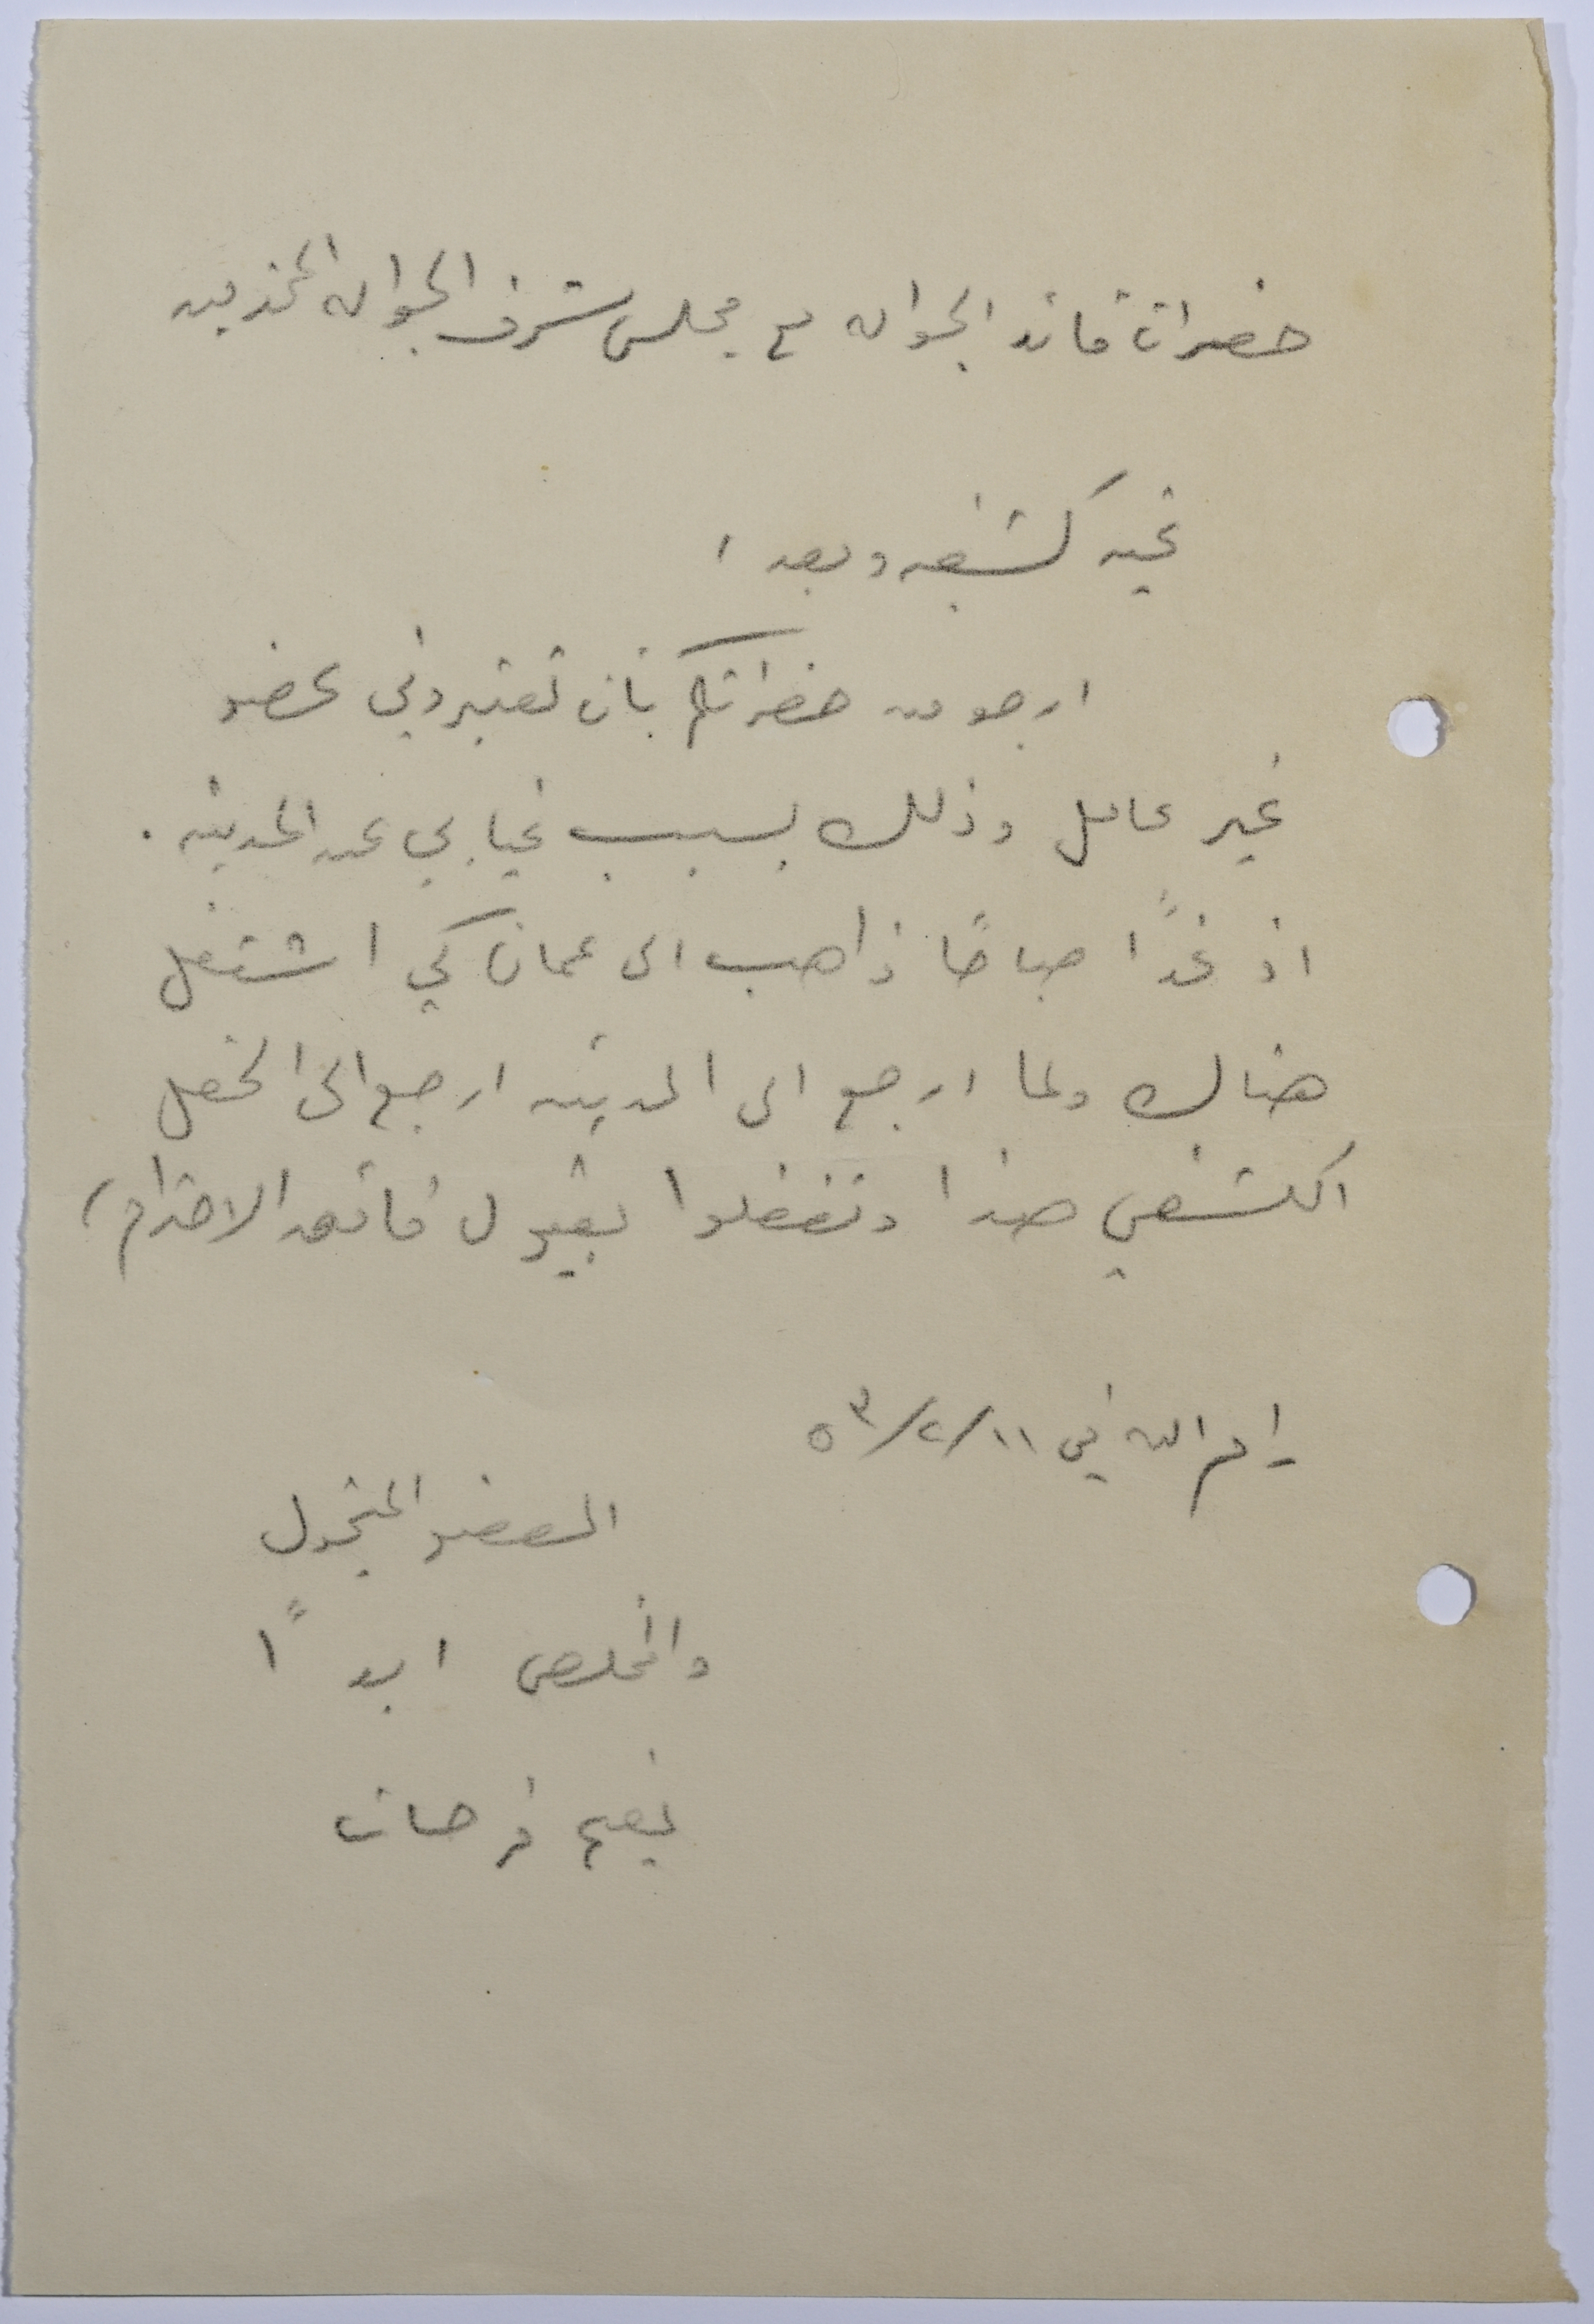 حضرات قائد الجواله مع مجلس شرف الجواله المحترمين
تحيه كشفيه وبعد ،
ارجو من حضراتكم بان تعتبروني عضو
غير عامل وذلك بسبب غيابي عن المدينه .
اذ غداً صباحاً ذاهب الى عمان كي اشتغل
هناك ولما ارجع الى المدينه ارجع الى الحقل
الكشفي هذا وتفضلوا بقبول فائق الاحترام ،
رام الله في ١١/٢/٥٣
العضو المتجول
والمخلص ابداً
نعيم فرحات